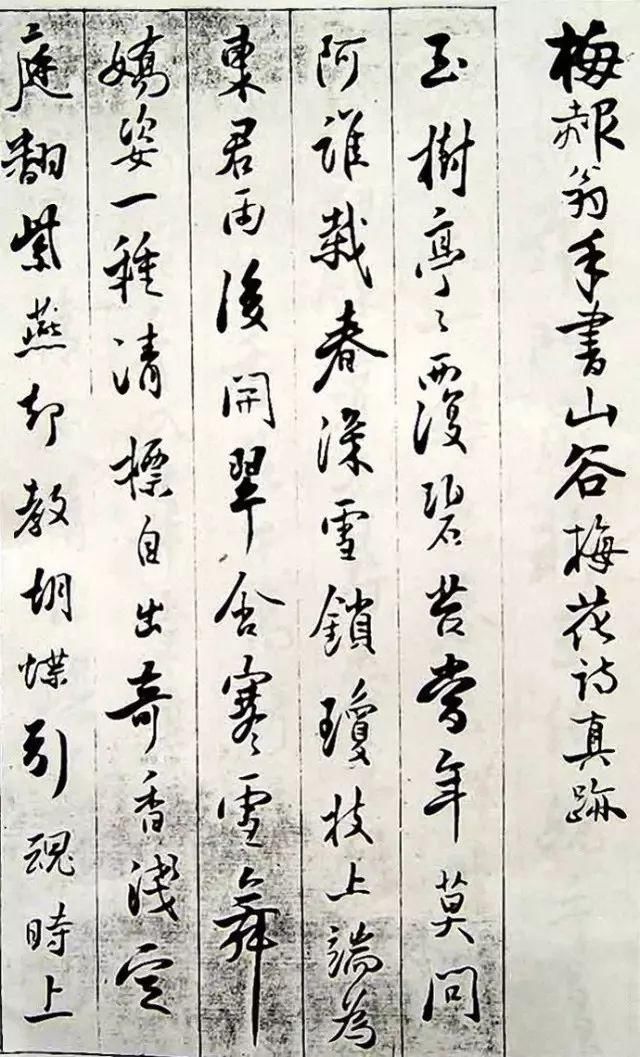 梅赧翁手書山谷梅花诗真跡
玉樹亭〻覆碧苔當年莫問
阿誰栽春深雪鎖瓊枝上端為
東君雨後開翠含寒雪舞
嬌姿一種清標自出奇香淺空
庭翻紫燕却教胡蝶引魂時上